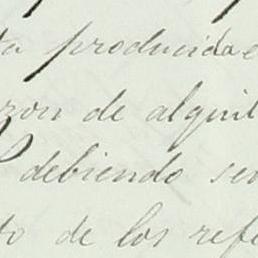 ta producida e
zon de alquil
debiendo ser
to de los refe